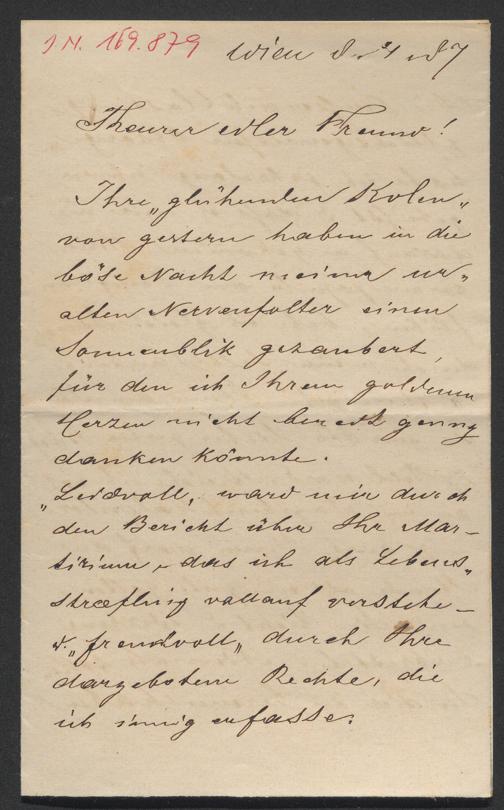 J.N. 169.879
Wien d. 4 87
Theurer edler Freund!
Ihre „glühenden Kolen„
von gestern haben in die
böse Nacht meiner ur„
alten Nervenfolter einen
Sonnenblik gezaubert,
für den ich Ihrem goldenen
Herzen nicht beredt genug
danken könnte.
„Leidvoll, ward mir durch
den Bericht über Ihr Mar–
tirium, das ich als Lebens„
sträfling vollauf verstehe –
u. „freudvoll„ durch Ihre
dargebotene Rechte, die
ich innig erfasse.